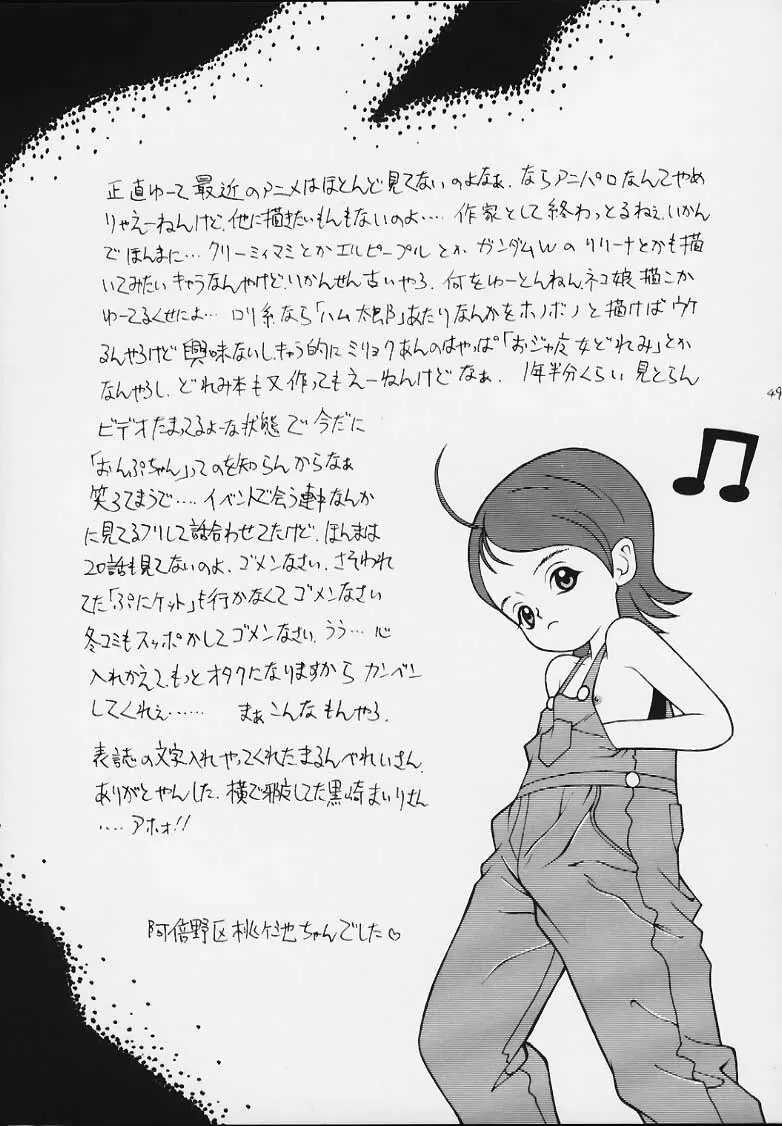 正直ゆーて最近のアニメはほとんど見てないのよなぁ.ならアニパロなんてやめ
りゃえーねんけど、他に描きたいもんもないのよ‥‥作家として終わっとるねぇ.いかん
でほんまに…クリーミィマミとかエルピープルとか ガンダムWのリリーナとかも描
いてみたいキャラなんやけど、いかんせん古いやろ.何をゆーとんねん.ネコ娘描こか
ゆーてるくせによ… ロリ系なら「ハム太郎」あたりなんかをホノボノと描けばウケ
るんやろけど興味ないし.きゃう的にミリョクあんのはやっぱ「おジャ魔女どれみ」とか
なんやろし.どれみ本も又作ってもえーねんけどなぁ.1年半分くらい見とらん
49
ビデオたまってるよーな状態で今だに
「おんぷちゃん」ってのを知らんからなぁ
笑ろてまうで‥‥イベントで会う連中なんか
に見てるフリして話合わせてたけど、ほんまは
20話も見てないのよ.ゴメンなさい.さそわれ
てた「ぷにケット」も行かなくてゴメンなさい
冬コミもスッポかしてゴメンなさい.うう…心
入れかえて、もっとオタクになりますから カンベン
してくれぇ…… まぁこんなもんやろ.
表誌の文字入れやってくれたまるんべれいさん.
ありがとやんした.横で邪魔してた黒崎まいりさん
‥‥アホォ!!
阿倍野区桃ヶ池ちゃんでした♡